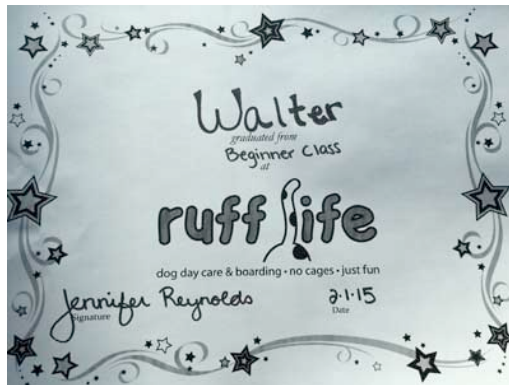 Walter
graduated from
Beginner Class
at
ruff life
dog day care & boarding • no cages • just fun
Jennifer Reynolds 2·1·15
Signature Date